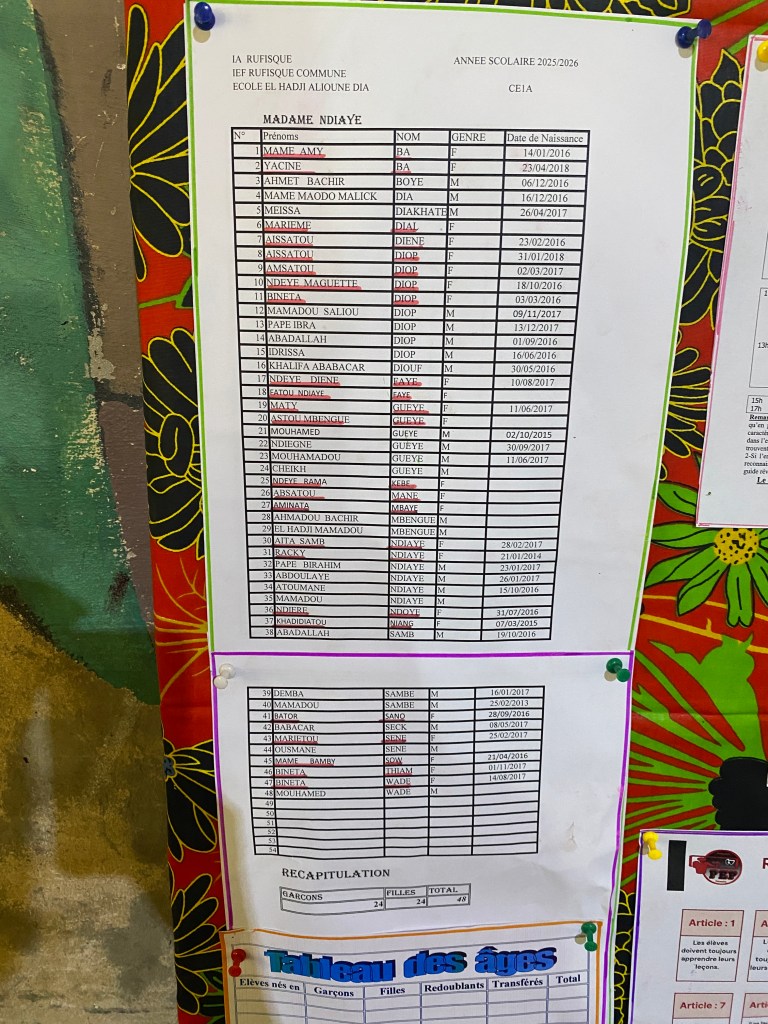 IA RUFISQUE
ANNEE SCOLAIRE 2025/2026
IEF RUFISQUE COMMUNE
ECOLE EL HADJI ALIOUNE DIA
CE1A
MADAME NDIAYE
N° Prénoms NOM GENRE Date de Naissance
1 MAME AMY BA F 14/01/2016
2 YACINE BA F 23/04/2018
3 AHMET BACHIR BOYE M 06/12/2016
4 MAME MAODO MALICK DIA M 16/12/2016
5 MEISSA DIAKHATE M 26/04/2017
6 MARIEME DIAL F
7 AISSATOU DIENE F 23/02/2016
8 AISSATOU DIOP F 31/01/2018
9 AMSATOU DIOP F 02/03/2017
10 NDEYE MAGUETTE DIOP F 18/10/2016
11 BINETA DIOP F 03/03/2016
12 MAMADOU SALIOU DIOP M 09/11/2017
13 PAPE IBRA DIOP M 13/12/2017
14 ABADALLAH DIOP M 01/09/2016
15 IDRISSA DIOP M 16/06/2016
16 KHALIFA ABABACAR DIOUF M 30/05/2016
17 NDEYE DIENE FAYE F 10/08/2017
18 FATOU NDIAYE FAYE F
19 MATY GUEYE F 11/06/2017
20 ASTOU MBENGUE GUEYE F
21 MOUHAMED GUEYE M 02/10/2015
22 NDIEGNE GUEYE M 30/09/2017
23 MOUHAMADOU GUEYE M 11/06/2017
24 CHEIKH GUEYE M
25 NDEYE RAMA KEBE F
26 ABSATOU MANE F
27 AMINATA MBAYE F
28 AHMADOU BACHIR MBENGUE M
29 EL HADJI MAMADOU MBENGUE M
30 AITA SAMB NDIAYE F 28/02/2017
31 RACKY NDIAYE F 21/01/2014
32 PAPE BIRAHIM NDIAYE M 23/01/2017
33 ABDOULAYE NDIAYE M 26/01/2017
34 ATOUMANE NDIAYE M 15/10/2016
35 MAMADOU NDIAYE M
36 NDIERE NDOYE F 31/07/2016
37 KHADIDIATOU NIANG F 07/03/2015
38 ABADALLAH SAMB M 19/10/2016
39 DEMBA SAMBE M 16/01/2017
40 MAMADOU SAMBE M 25/02/2013
41 BATOR SANO F 28/09/2016
42 BABACAR SECK M 08/05/2017
43 MARIETOU SENE F 25/02/2017
44 OUSMANE SENE M
45 MAME BAMBY SOW F 21/04/2016
46 BINETA THIAM F 01/11/2017
47 BINETA WADE F 14/08/2017
48 MOUHAMED WADE M
49
50
51
52
53
54
RECAPITULATION
GARCONS FILLES TOTAL
24 24 48
Tableau des âges
Elèves nés en Garçons Filles Redoublants Transférés Total
13h
15h
17h
Article : 1
Les élèves
doivent toujours
apprendre leurs
leçons.
Article : 7